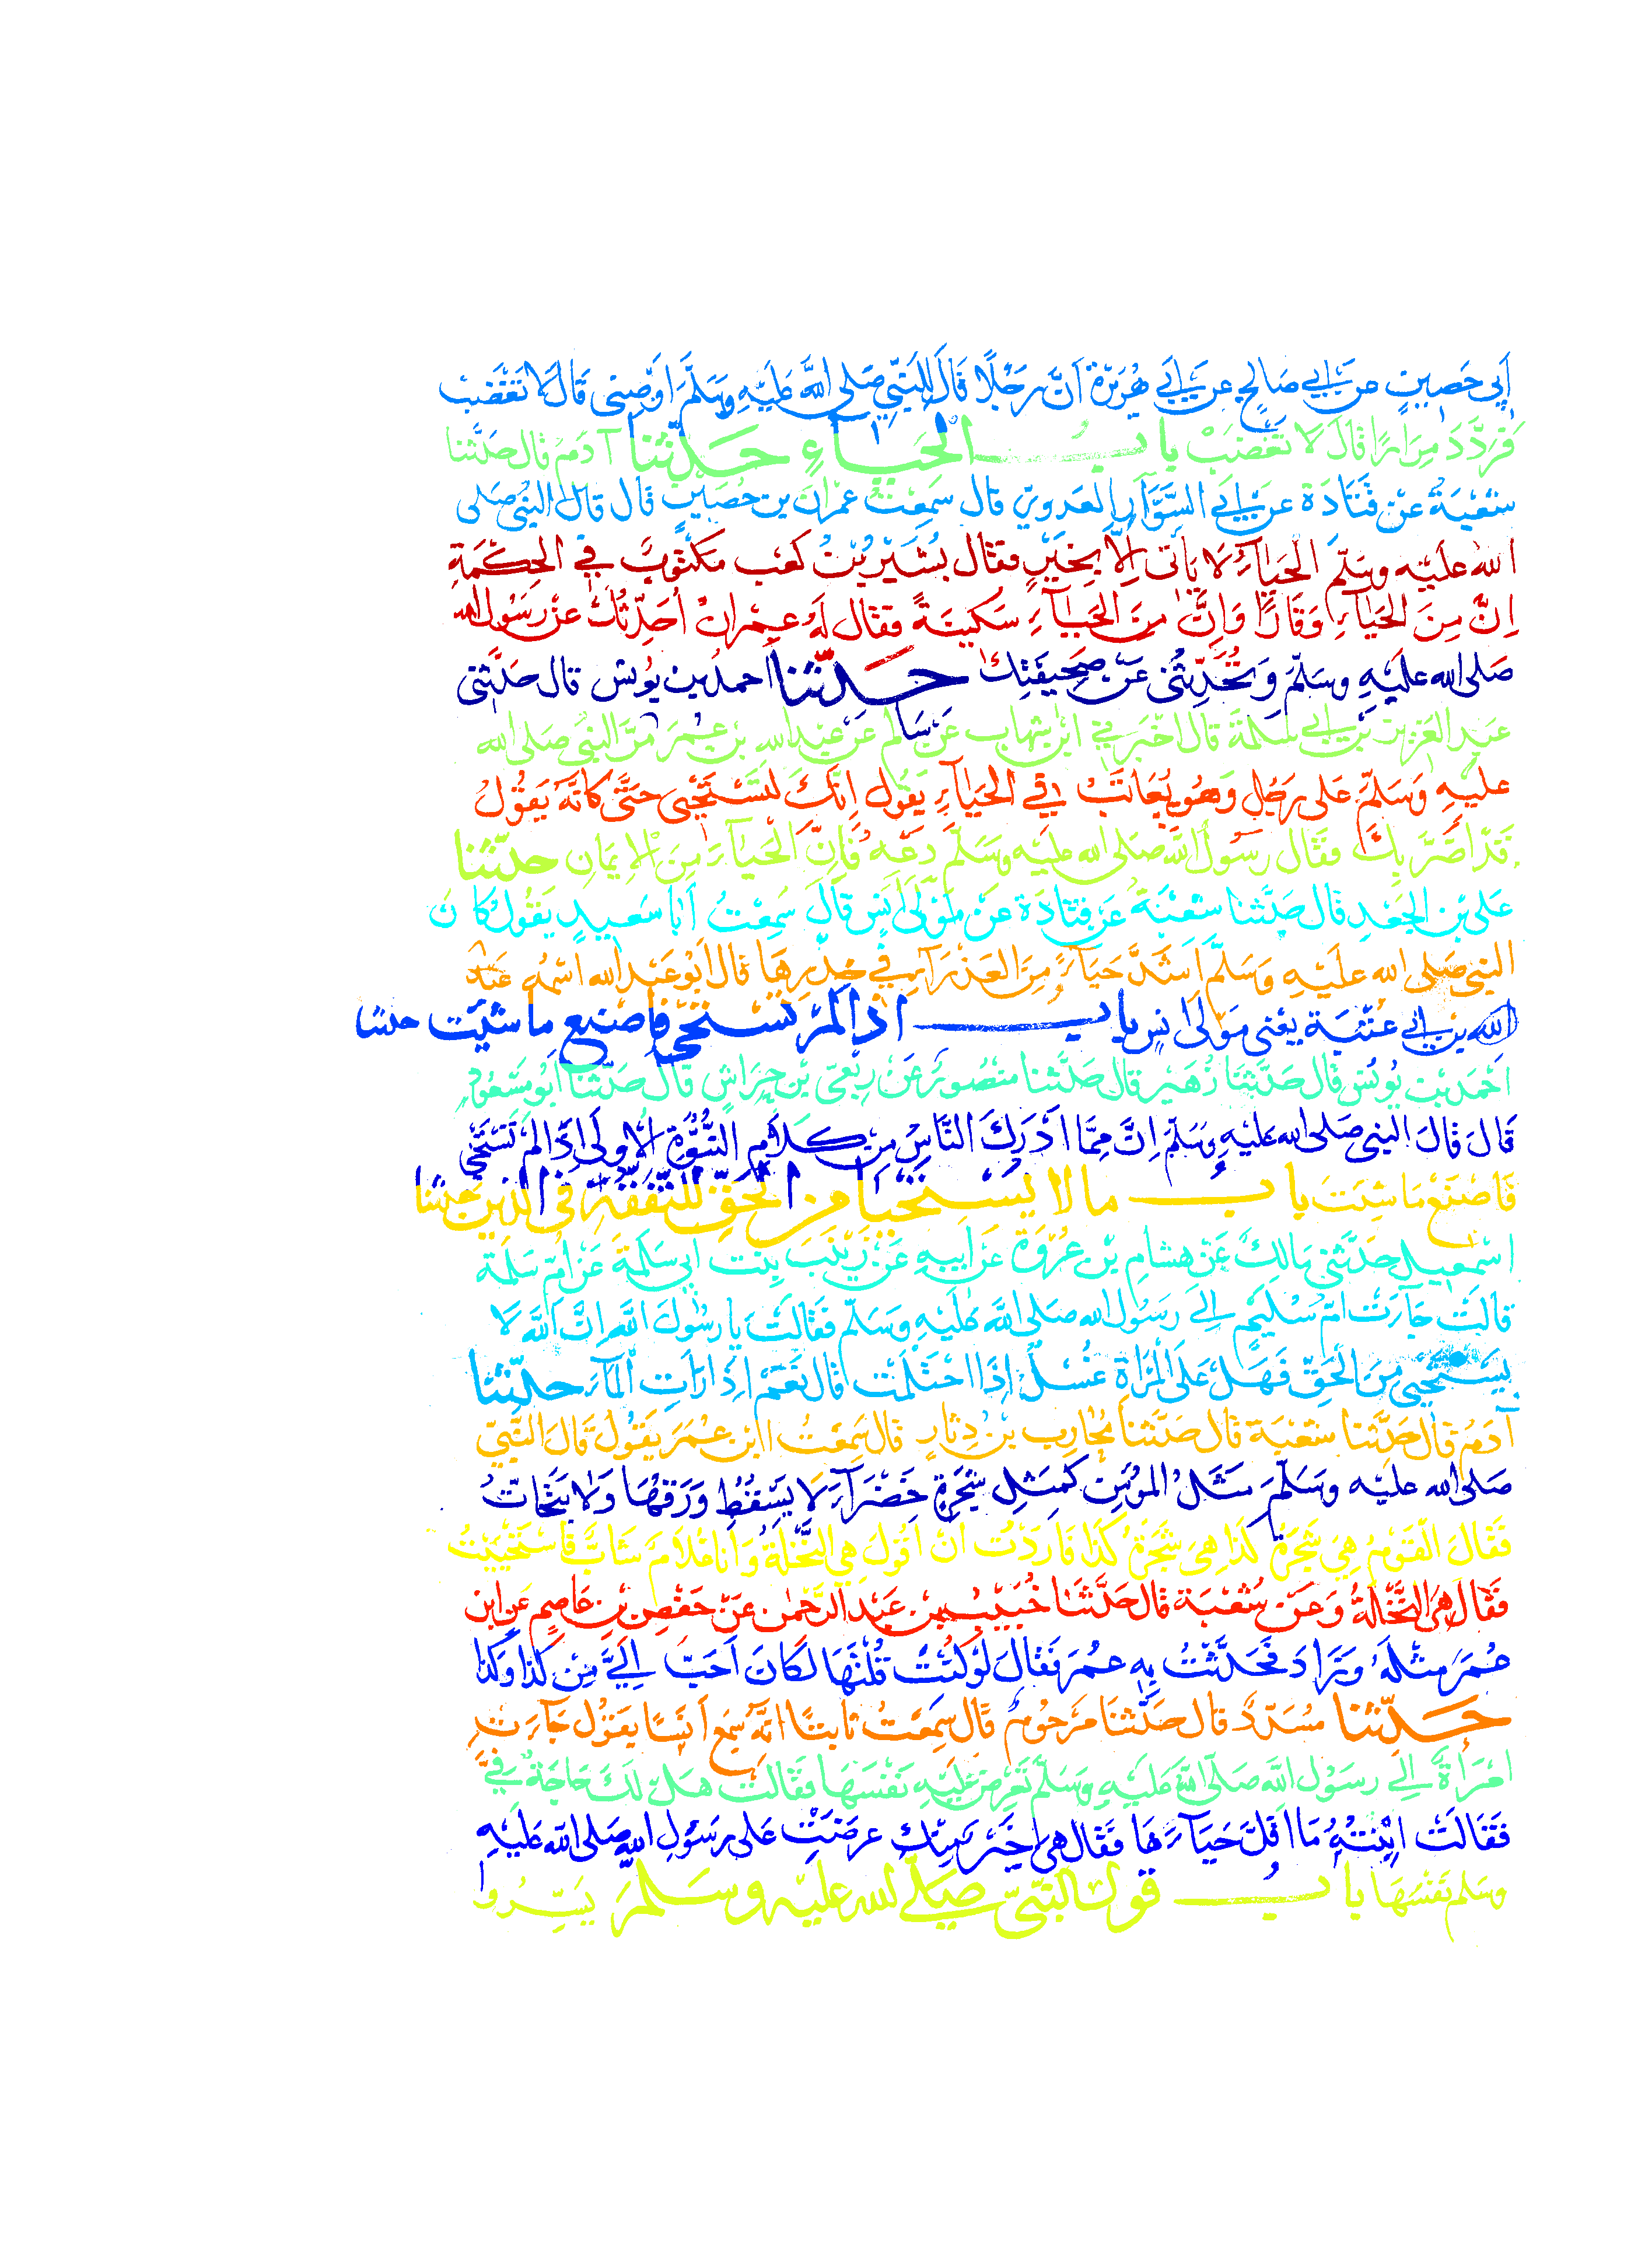 اَبِي حَصِينٍ عن اَبِي صَالِحٍ عن اَبِي هُرَيْرَةَ اَنَّ رَجُلًا قَالَ لِلنَّبِيِّ صَلى اللهُ عَلَيْهِ وَسَلَّمَ اَوْصِنِى قَالَ لَا تَغْضَبْ
فَرَدَّدَ مِرَارًا قَالَ لَا تَغْضَبْ بابُ الحَيَاءِ حَدّثنا آدَمُ قال حدّثنا
شُعْبَةُ عَنْ قَتَادَةَ عن اَبِي السَّوَّارِ العَدَوِيّ قال سَمِعْتُ عِمْرَانَ بن حُصَيْنٍ قال قال النبىُّ صلى
الله عَلَيْهِ وسَلّمَ الحَيَاءُ لَا يَأتى اِلَّا بِخَيْرٍ فقال بُشَيْرُ بْنُ كَعْبٍ مَكْتُوبٌ فِي الحِكْمَةِ
اِنَّ مِنَ الحَيَاءِ وَقَارًا وَاِنَّ مِنَ الحَيَاءِ سَكِينَةً فقال لَهُ عِمْرانُ اُحَدِّثُكَ عَنْ رَسُولِ الله
صَلى الله عَلَيْهِ وسَلّمَ وَتُحَدِّثُنِى عَنْ صَحِيفَتِكَ حَدّثنا احمدُ بن يُونس قال حَدّثنى
عَبْدُ العَزِيزِ بْنُ اَبِي سَلمَةَ قال اَخْبَرَنِي ابْنُ شِهابٍ عَنْ سَالم عَنْ عَبْدِ الله بْنِ عُمَرَ مَرَّ النبىُّ صَلى الله
عليهِ وَسَلّمَ عَلى رَجُلٍ وَهُوَ يُعَاتَبُ فِي الحَيَاءِ يَقُول اِنَّكَ لَتَسْتَحْيِى حَتَّى كَانَّهُ يَقُوْلُ
قَدْ اَضَرَّ بِكَ فقَال رَسُولُ الله صَلى الله عليه وسَلّمَ دَعْهُ فَاِنَّ الحَيَاءَ مِنَ الاِيمَانِ حدّثنا
عَلى بْن الجَعْدِ قال حَدّثنا شُعْبَةُ عَنْ قَتَادَةَ عَنْ مَوْلَى اَنَسٍ قَالَ سَمِعْتُ اَبَا سَعِيدٍ يَقُولُ كَا نَ
النبى صلى الله عليْهِ وَسَلّمَ اَشَدَّ حَيَاءً مِنَ العَذْرَاءِ فِي خِدْرِهَا قال ابُو عَبْد الله اسْمُهُ عَبْد
الله بن اَبِي عُتْبَة يعْنى مَوْلى انسٍ بابُ اذا لَمْ تَسْتَحْيِ فَاصْنع ما شِئْتَ حدثنا
اَحْمَد بْنُ يُونُس قال حَدّثنا زُهَيْر قال حَدّثنا مَنصُور عَنْ رِبْعِيّ بْنِ حِرَاشٍ قَالَ حَدّثنا اَبُو مَسْعُودٍ
قَالَ قَالَ النبى صَلى الله عَليْهِ وَسَلّمَ اِنَّ مِمَّا اَدْرَكَ النَّاسُ مِنْ كَلَامِ النُّبُوَّةِ الاُولَى اِذَا لَمْ تَسْتَحْيِ
فَاصْنَعْ مَا شِئتَ بابُ ما لا يُسْتَحْيَا مِنَ الحَقِّ لِلتَّفَقُّهِ فِى الدّينِ حدّثنا
اسْمٰعِيل حَدّثَنى مَالِكٌ عَنْ هِشامِ بْنِ عُرْوَةَ عَنْ اَبِيهِ عَنْ زَيْنَبَ بِنت اَبِي سَلَمَةَ عَنْ امّ سَلَمَة
قالَتْ جَاءَتْ امّ سُلَيْمٍ اِلَى رَسُول الله صَلى اللهُ عَلَيْهِ وَسَلّم فَقَالَتْ يا رسُولَ الله اِنَّ اللهَ لَا
يَسْتَحْيِى مِنَ الحَقِّ فَهَلْ عَلَى المَرْاَةِ غُسْلٌ اِذَا احْتَلَمَت قال نَعَمْ اِذَا رَاَتِ المَاءَ حدّثنا
آدَمُ قَال حَدّثنا شُعْبَة قال حَدّثنا مُحَارِب بْنُ دِثَارٍ قال سَمِعْتُ ابْن عُمَرَ يَقُولُ قَالَ النَّبِيّ
صَلى الله عليْه وسَلّمَ مَثَلُ المُؤْمِنِ كَمَثَلِ شَجَرَةٍ خَضْرَاءَ لَا يَسْقُطُ وَرَقُهَا وَلَا يَتَحَاتُّ
فَقَالَ القَوْمُ هِيَ شَجَرَةُ كَذَا هِىَ شَجَرَةُ كَذَا فَارَدْتُ اَنْ اَقُولَ هِي النَّخْلَةُ وَاَنَا غُلَامٌ شَابٌّ فَاسْتَحْيَيْتُ
فَقَال هِىَ النَّخْلَةُ وَعَنْ شُعْبَة قال حَدَّثنَا خُبَيْبُ بْن عَبْد الرّحمٰن عَنْ حَفْصِ بْنِ عَاصِمٍ عَنِ ابْن
عُمَرَ مِثْلَهُ وَزَادَ فَحَدَّثْتُ بِهِ عُمَرَ فَقَالَ لَوْ كُنْتَ قُلْتَهَا لَكَانَ اَحَبَّ اِلَيَّ مِنْ كَذَا وَكَذا
حَدّثنا مُسَدّدٌ قال حَدّثَنَا مَرْحُومٌ قَال سَمِعْتُ ثَابتًا انّهُ سَمِعَ اَنَسًا يَقُول جَاءَتِ
امْرَاَةٌ اِلَى رسُول الله صَلى الله عَلَيْهِ وَسَلّمَ تَعْرِضُ عَلَيْهِ نَفْسَهَا فقَالتْ هَلْ لَكَ حَاجَةٌ فِيَّ
فَقَالَتِ ابْنَتُهُ مَا اَقَلَّ حَيَاءَهَا فَقَال هِىَ خَيْرٌ مِنْكِ عرَضَتْ عَلى رَسُول اللهِ صَلى الله عَلَيْهِ
وسَلم نَفْسَهَا بابُ قول النّبيّ صلى الله عليه وسَلمَ يَسِّرُوا